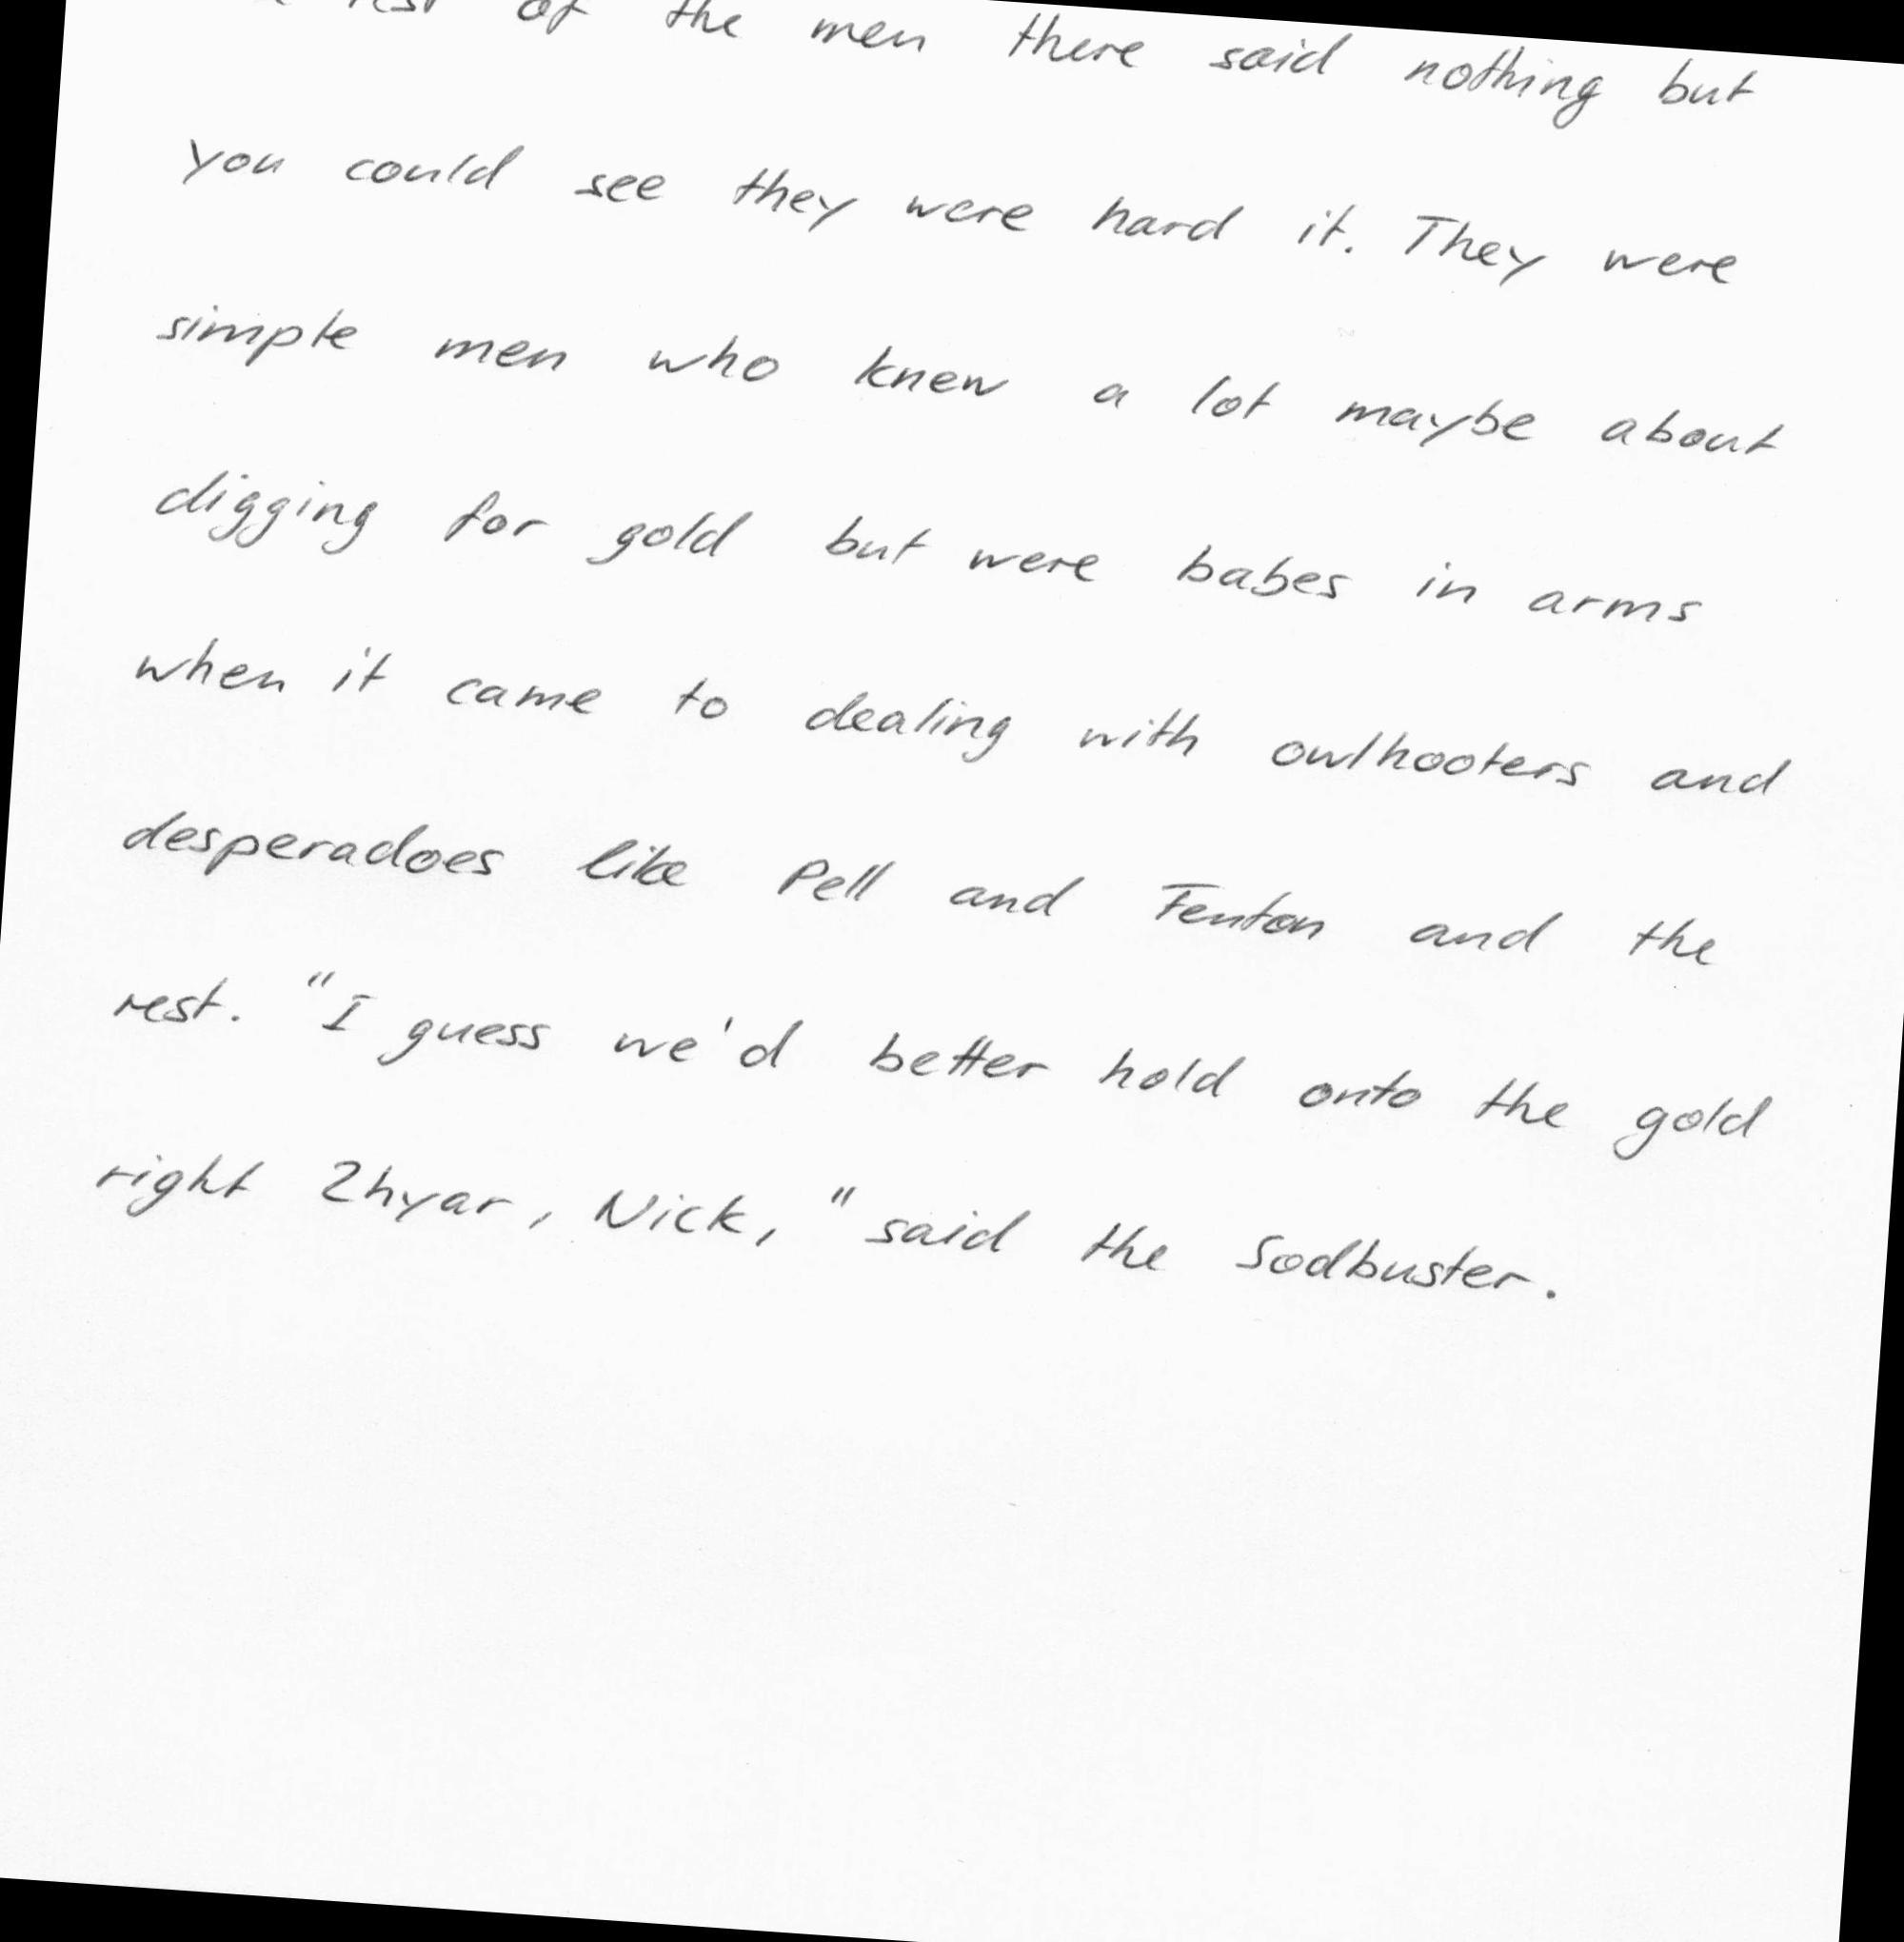 rest of the men there said nothing but
you could see they were hard it. They were
simple men who knew a lot maybe about
digging for gold but were babes in arms
when it came to dealing with owlhooters and
desperadoes like Pell and Fenton and the
rest. "I guess we'd better hold onto the gold
right 2hyar, Nick," said the Sodbuster.